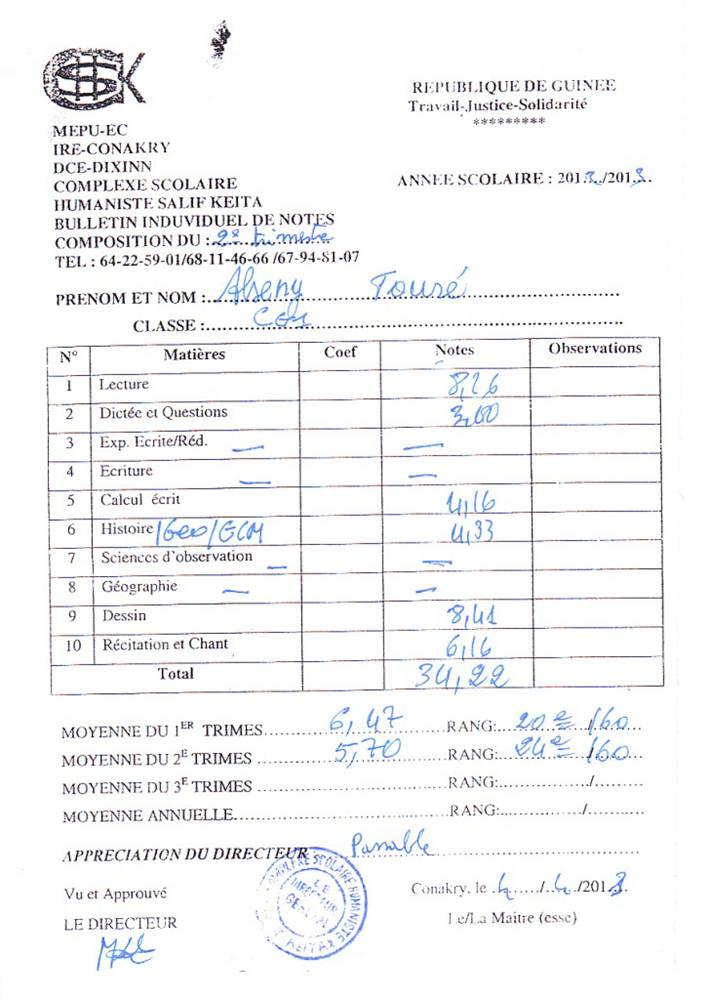 CHSK
REPUBLIQUE DE GUINEE
Travail-Justice-Solidarité
*********
MEPU-EC
IRE-CONAKRY
DCE-DIXINN
COMPLEXE SCOLAIRE
HUMANISTE SALIF KEITA
ANNEE SCOLAIRE : 2012./2013.
BULLETIN INDUVIDUEL DE NOTES
COMPOSITION DU : 2e trimestre
TEL : 64-22-59-01/68-11-46-66 /67-94-81-07
PRENOM ET NOM : Alseny Touré
CLASSE :
N° Matières Coef Notes Observations
1 Lecture 8,26
2 Dictée et Questions 3,00
3 Exp. Ecrite/Réd. — —
4 Ecriture — —
5 Calcul écrit 4,16
6 Histoire /Geo/ECM 4,33
7 Sciences d'observation — —
8 Géographie — —
9 Dessin 8,41
10 Récitation et Chant 6,16
Total 34,22
MOYENNE DU 1ER TRIMES 6,47 RANG: 20e /60
MOYENNE DU 2E TRIMES 5,70 RANG: 24e /60
MOYENNE DU 3E TRIMES RANG: /
MOYENNE ANNUELLE RANG: /
APPRECIATION DU DIRECTEUR : Passable
COMPLEXE SCOLAIRE HUMANISTE
LE DIRECTEUR GENERAL
KEITA
Vu et Approuvé
Conakry, le 4 / 4 /2013
LE DIRECTEUR
Le/La Maitre (esse)